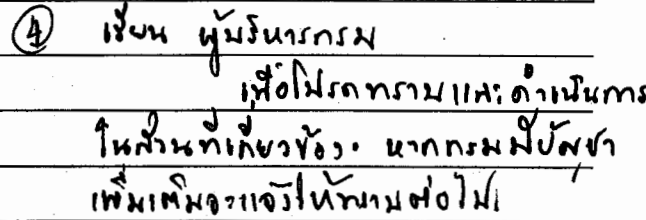 ④ เรียน ผู้บริหารกรม
เพื่อโปรดทราบและดำเนินการ
ในส่วนที่เกี่ยวข้อง หากกรมมีบัญชา
เพิ่มเติมจะแจ้งให้ทราบต่อไป